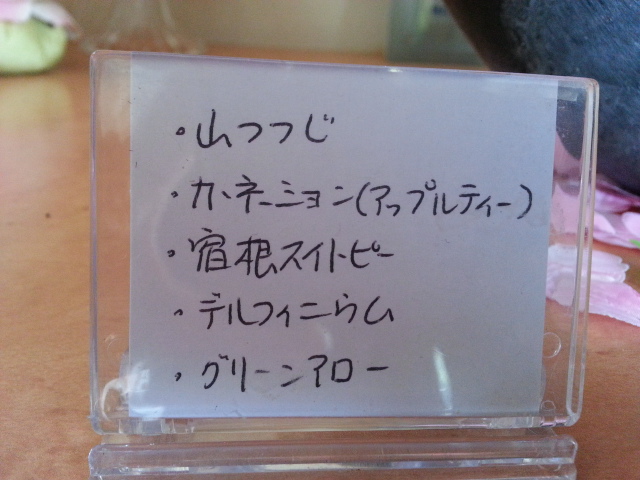 ・山つつじ
・カーネーション(アップルティー)
・宿根スイトピー
・デルフィニウム
・グリーンアロー